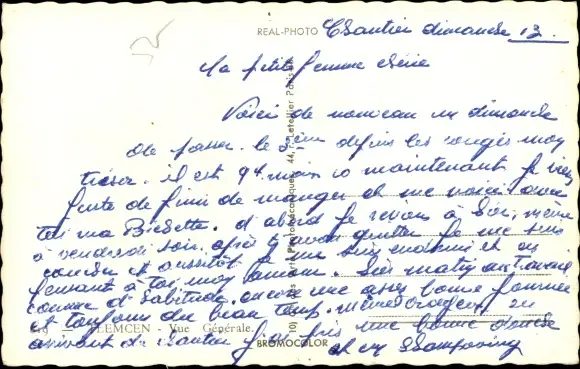 REAL-PHOTO Chantier dimanche 13.
Ma petite femme chérie
Voici de nouveau un dimanche
de passer. le 9ème depuis les congés mon
trésor. il est 9h moins 10 maintenant. Je viens
juste de finir de manger et me voici avec
toi ma Bichette. d'abord je reviens à hier, même
à vendredi soir, après t'avoir quitter je me suis
coucher et aussitôt je me suis endormi et en
pensant à toi mon amour. hier matin au travail
comme d'habitude. encore une assez bonne journée
et toujours du beau temps.
TLEMCEN - Vue Générale.
arrivant du chantier j'ai pris une bonne douche
BROMOCOLOR
et un shampoing
44, r. Letellier Paris